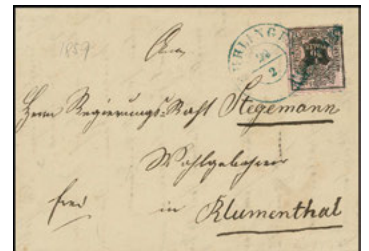 1859
An
Herrn Regierungs-Rath Stegemann
Wohlgeboren
frei
in
Blumenthal